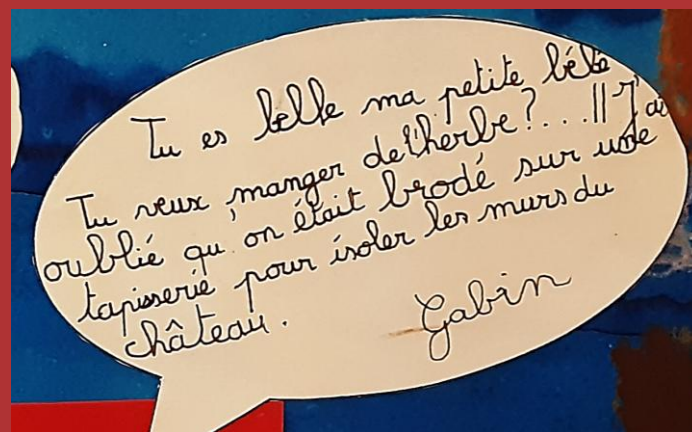 Tu es belle ma petite bébé
Tu veux manger de l'herbe?...|| J'ai
oublié qu'on était brodé sur une
tapisserie pour isoler les murs du
château.
Gabin